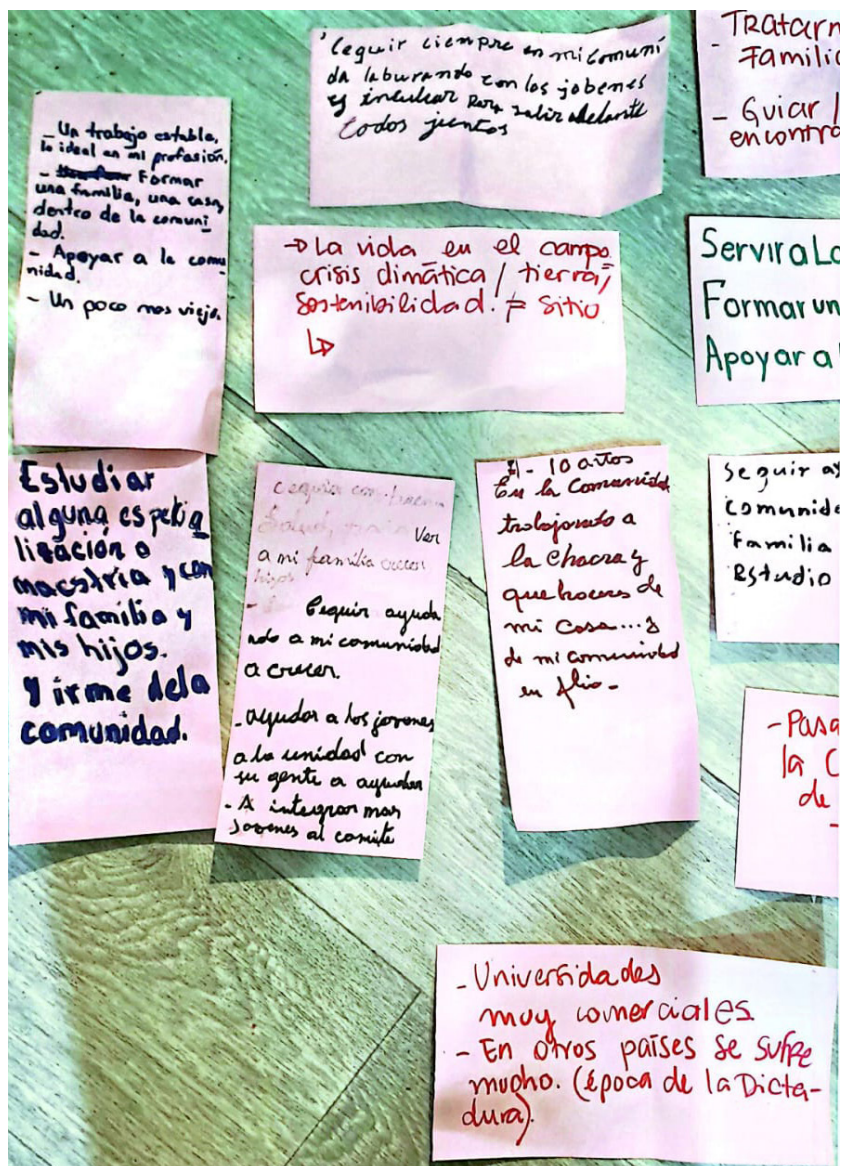 - Un trabajo estable,
lo ideal en mi profesión.
- Formar
una familia, una casa,
dentro de la comuni
dad.
- Apoyar a la comu
nidad.
- Un poco mas viejo.
Ceguir ciempre en mi comuni
da laburando con los jobenes
y inculcar para salir adelante
todos juntos
Tratar
Familia
- Guiar
encontra
→ La vida en el campo
crisis climática / tierra/
Sostenibilidad. ≠ sitio
↳
Servir a La
Formar un
Apoyar a
Estudiar
alguna espetia
lización o
maestria y con
mi familia y
mis hijos.
Y irme dela
comunidad.
ceguir con buena
Salud, ver
a mi familia crecer
hijos
- Ceguir ayuda
ndo a mi comunidad
a crecer.
- ayudar a los jovenes
a la unidad con
su gente a ayudar
- A integrar mas
Jovenes al comite
10 años
En la Comunidad
trabajando a
la chacra y
que haceres de
mi casa...y
de mi comunidad
en
Seguir ay
comunida
Familia
Estudio
- Pasa
la C
de
-
- Universidades
muy comerciales.
- En otros países se sufre
mucho. (época de la Dicta-
dura).